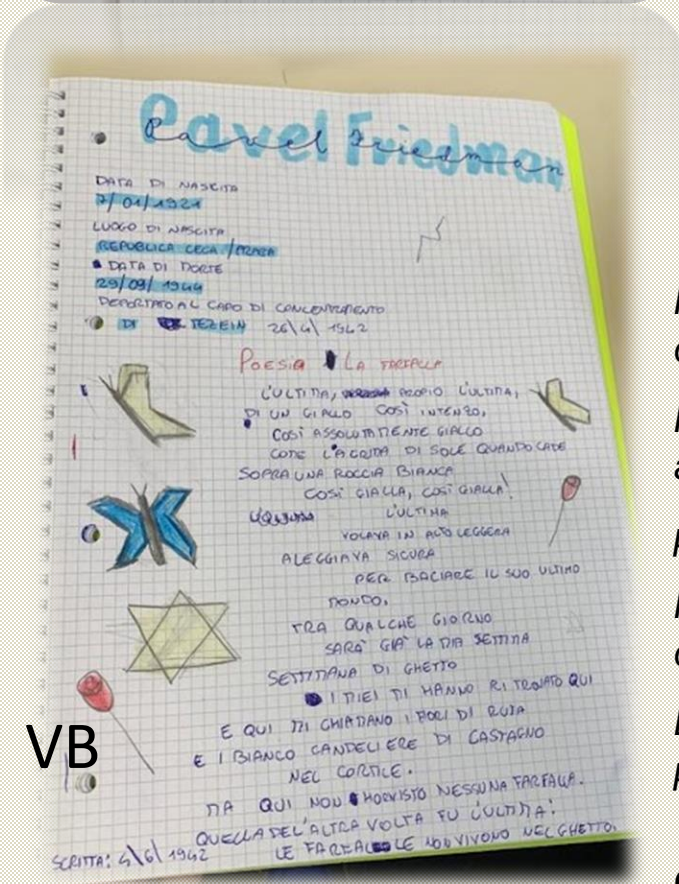 Pavel Friedman
Pavel Friedman
DATA DI NASCITA
7/01/1921
LUOGO DI NASCITA
REPUBLICA CECA /PRAGA
DATA DI MORTE
29/09/1944
DEPORTATO AL CAPO DI CONCENTRAMENTO
DI TEZEIN 26\4\1942
POESIA LA FARFALLA
L'ULTIMA, PROPIO L'ULTIMA,
DI UN GIALLO COSÌ INTENZO,
COSÌ ASSOLUTAMENTE GIALLO
COME L'ACRIMA DI SOLE QUANDO CADE
SOPRA UNA ROCCIA BIANCA
COSÌ GIALLA, COSÌ GIALLA!
L'ULTIMA
VOLAVA IN ALTO LEGGERA
ALEGGIAVA SICURA
PER BACIARE IL SUO ULTIMO
MONDO,
TRA QUALCHE GIORNO
SARÀ GIÀ LA MIA SETTIMA
SETTIMANA DI GHETTO
I MIEI MI HANNO RITROVATO QUI
E QUI MI CHIAMANO I FORI DI RUTA
E I BIANCO CANDELIERE DI CASTAGNO
NEL CORTILE.
MA QUI NON HO RVISTO NESSUNA FARFALLA.
QUELLA DEL'ALTRA VOLTA FU L'ULTIMA!
LE FARFALLE NON VIVONO NEL GHETTO.
SCRITTA: 4\6\1942
VB